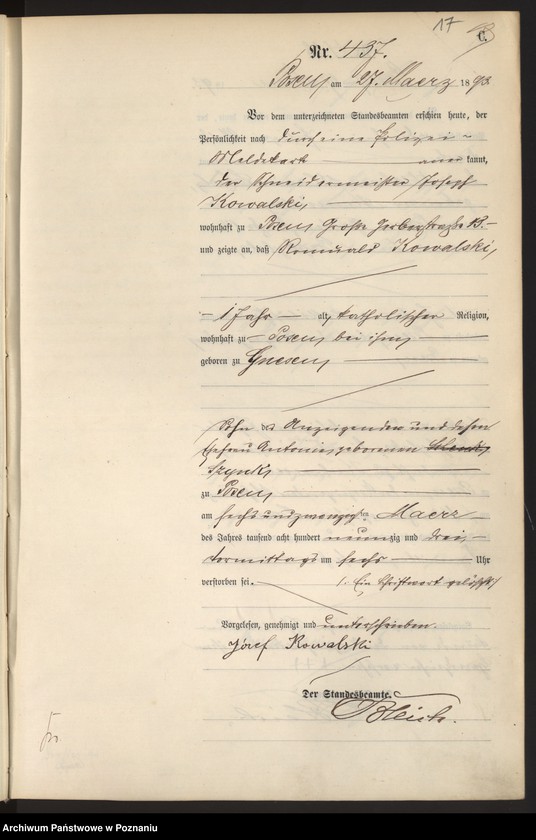 17
C.
Nr. 437.
Posen, am 27. Maerz 1893.
Vor dem unterzeichneten Standesbeamten erschien heute, der
Persönlichkeit nach durch eine Polizei-
Meldekarte anerkannt,
der Schneidermeister Joseph
Kowalski,
wohnhaft zu Posen, Große Gerberstraße
und zeigte an, daß Romuald Kowalski,
1 Jahr alt, katholischer Religion,
wohnhaft zu Posen, bei ihm,
geboren zu Gnesen,
Sohn des Anzeigenden und dessen
Ehefrau Antonie, geborenen
Szynk,
zu Posen,
am sechsundzwanzigsten Maerz
des Jahres tausend acht hundert neunzig und drei
Vormittags um sechs Uhr
verstorben sei. /: Ein Schriftwort gelöscht./
Vorgelesen, genehmigt und unterschrieben.
Józef Kowalski
Der Standesbeamte.
Archiwum Państwowe w Poznaniu